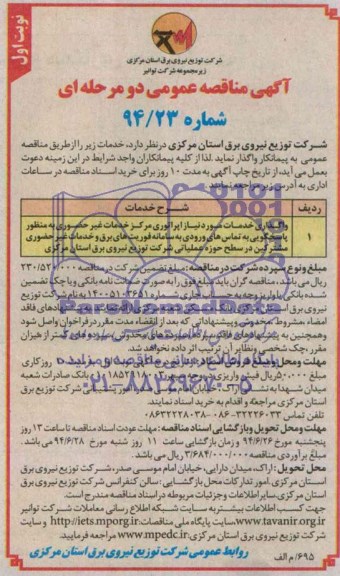 نوبت اول
شرکت توزیع نیروی برق استان مرکزی
زیرمجموعه شرکت توانیر
آگهی مناقصه عمومی دو مرحله ای
شماره ۹۴/۲۳
شرکت توزیع نیروی برق استان مرکزی درنظر دارد، خدمات زیر را از طریق مناقصه
عمومی به پیمانکار واگذار نماید. لذا از کلیه پیمانکاران واجد شرایط در این زمینه دعوت
بعمل می آید، از تاریخ چاپ آگهی به مدت ۱۰ روز برای خرید اسناد مناقصه در ساعات
اداری به آدرس زیر مراجعه نمایند.
ردیف شرح خدمات
۱ واگذاری خدمات مورد نیاز اپراتوری مرکز خدمات غیر حضوری به منظور
پاسخگویی به تماس های ورودی به سامانه فوریت های برق و خدمات غیرحضوری
مشترکین در سطح حوزه عملیاتی شرکت توزیع نیروی برق استان مرکزی
مبلغ و نوع سپرده شرکت در مناقصه: مبلغ تضمین شرکت در مناقصه ۲۳۰/۵۲۰/۰۰۰
ریال می باشد، مناقصه گران باید مبلغ فوق را به صورت ضمانت نامه بانکی و یا چک تضمین
شده بانکی یا واریز وجه به حساب جاری شماره ۱۴۰۰۵۱۰۳۶۵۱ به نام شرکت توزیع
نیروی برق استان مرکزی
امضاء، مشروط، مخدوش و پیشنهاداتی که بعد از انقضاء مدت مقرر در فراخوان واصل شود
و همچنین به پیشنهادهای فاقد سپرده، سپرده های مخدوش، سپرده های کمتر از میزان
مقرر، چک شخصی و نظایر آن ترتیب اثر داده نخواهد شد.
مهلت و محل و مبلغ فروش اسناد: روز کاری
مبلغ ۵۰۰/۰۰۰ ریال فیش واریزی بانک صادرات شعبه
میدان شهدا به نام شرکت توزیع برق
استان مرکزی مراجعه و اقدام به خرید اسناد نمایند.
تلفن تماس ۳۲۲۲۶۰۳۳-۰۸۶ ۰۸۶۳۲۲۲۸۰۳۸
مهلت و محل تحویل و بازگشایی اسناد مناقصه: مهلت عودت اسناد مناقصه تا ساعت ۱۳ روز
پنجشنبه مورخ ۹۴/۶/۲۶ و زمان بازگشایی ساعت ۱۱ روز شنبه مورخ ۹۴/۶/۲۸ می باشد.
مبلغ برآوردی مناقصه ۳/۶۸۴/۰۰۰/۰۰۰ ریال می باشد.
محل تحویل: اراک، میدان دارایی، خیابان امام موسی صدر، شرکت توزیع نیروی برق
استان مرکزی، امور تدارکات محل بازگشایی: سالن کنفرانس شرکت توزیع نیروی برق
استان مرکزی. سایر اطلاعات و جزئیات مربوطه در اسناد مناقصه مندرج است.
جهت کسب اطلاعات بیشتر به سایت شبکه اطلاع رسانی معاملات شرکت توانیر
www.tavanir.org.ir، سایت پایگاه ملی مناقصات http://iets.mporg.ir و سایت
شرکت توزیع نیروی برق استان مرکزی www.mpedc.ir مراجعه فرمایید.
روابط عمومی شرکت توزیع نیروی برق استان مرکزی
۶۹۵/م الف
ParsNamadData
پایگاه اطلاع رسانی مناقصه و مزایده
۰۲۱-۸۸۳۴۹۶۷۰-۵